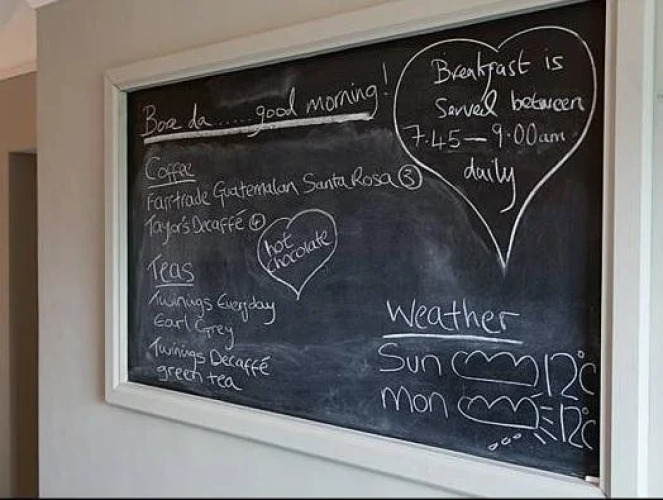 Bore da......good morning!
Breakfast is
Served between
7.45 — 9.00am
daily
Coffee
Fairtrade Guatemalan Santa Rosa ③
Taylor's Decaffé ④
hot
chocolate
Teas
Twinings Everyday
Earl Grey
Twinings Decaffé
green tea
Weather
Sun 12°C
Mon 12°C